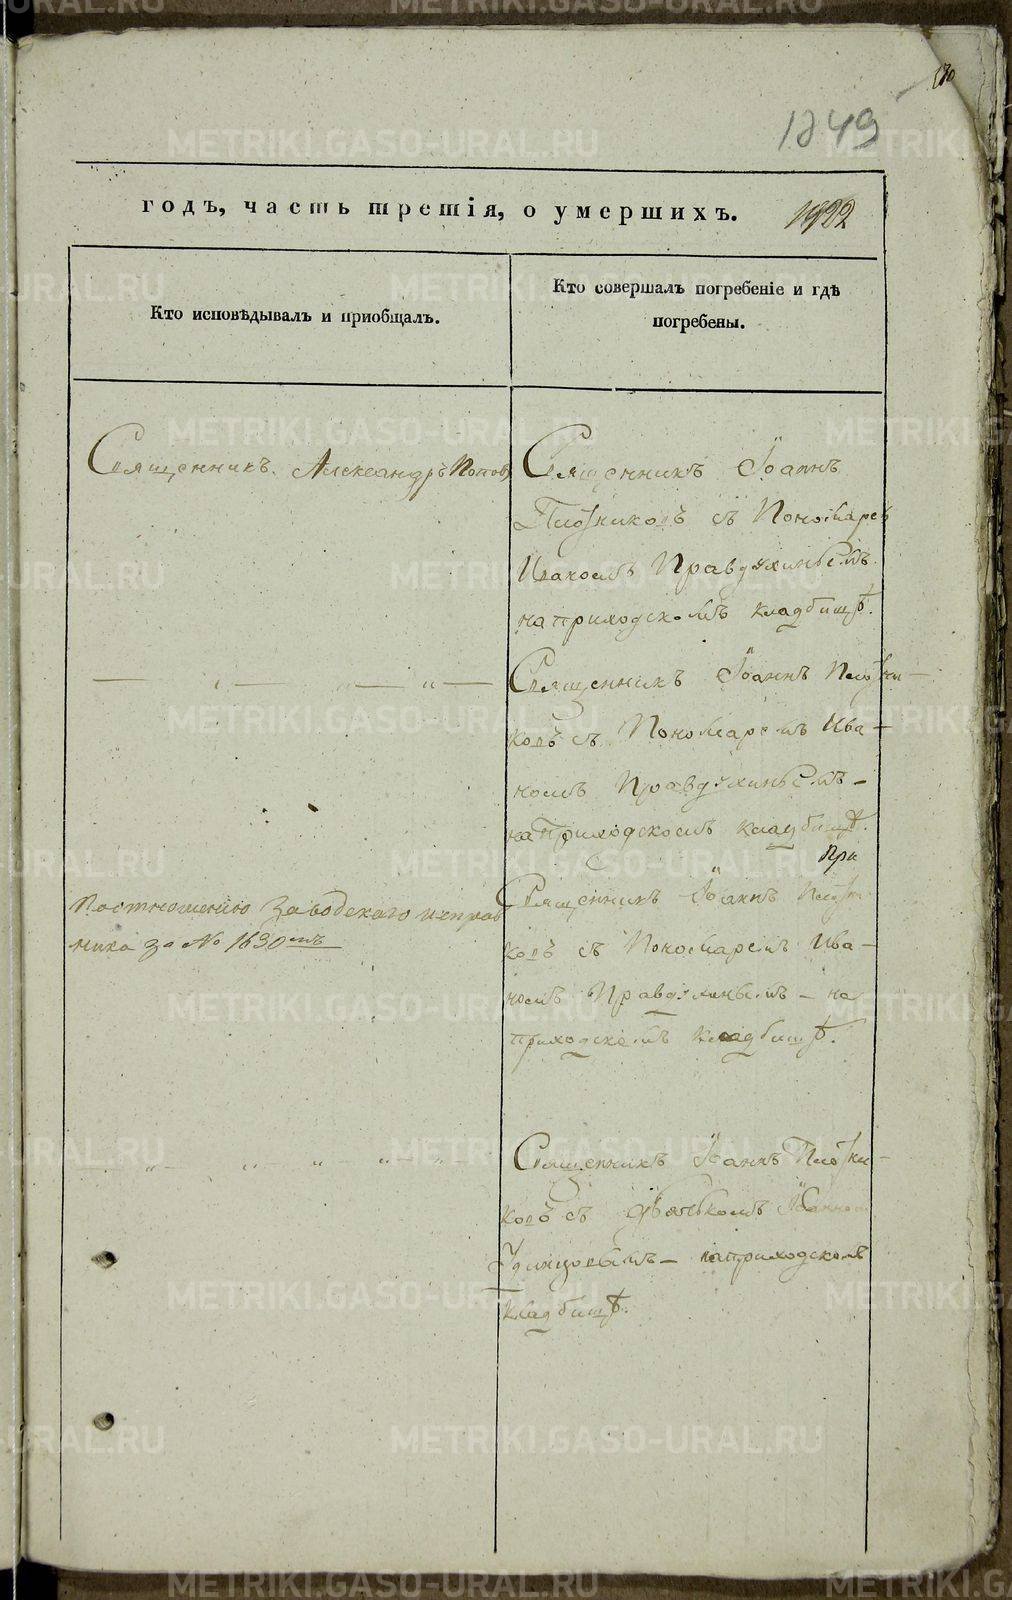 1849
годъ, часть третія, о умершихъ.
Кто исповѣдывалъ и приобщалъ.
Кто совершалъ погребеніе и гдѣ
погребены.
Священникъ Александръ Попов
Священникъ Іоаннъ
Плотниковъ съ Пономарем
Иваномъ Правдухинымъ
на приходскомъ кладбищѣ.
— „ — „ — „ —
Священникъ Іоаннъ Плотни-
ковъ съ Пономаремъ Ива-
номъ Правдухинымъ -
на приходскомъ кладбищѣ.
При
По отношению Заводскаго исправ
ника за № 1630мъ
Священникъ Іоаннъ Плотни
ковъ съ Пономаремъ Ива-
номъ Правдухинымъ - на
приходскомъ кладбищѣ.
— „ — „ „ „ — „ —
Священникъ Іоаннъ Плотни-
ковъ съ дьячькомъ Іоанном
Удинцовымъ - на приходскомъ
кладбищѣ.
METRIKI.GASO-URAL.RU